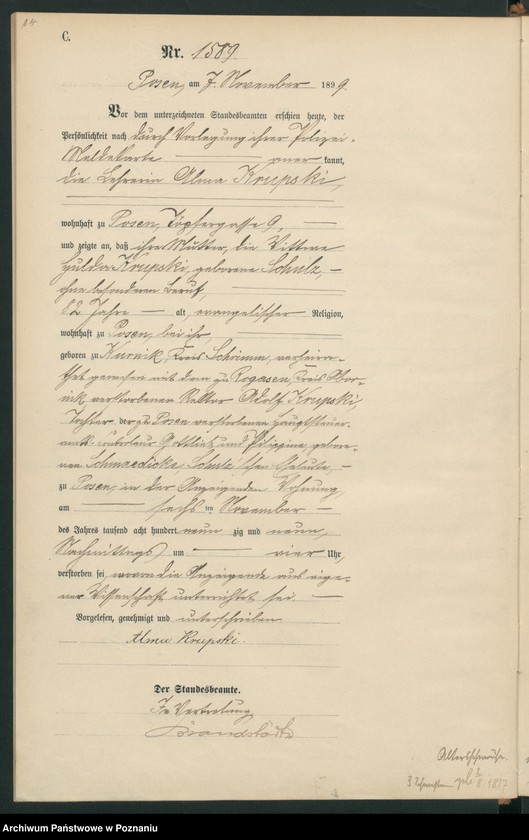 C.
Nr. 1589.
Posen, am 7. November 1899.
Vor dem unterzeichneten Standesbeamten erschien heute, der
Persönlichkeit nach durch Vorlegung ihrer Polizei-
Meldekarte kannt,
die Lehrerin Alma Krupski,
wohnhaft zu Posen, Töpfergasse 9,
und zeigte an, daß ihre Mutter, die Wittwe
Hulda Krupski, geborene Schulz,
ohne besonderen Beruf,
82 Jahre alt, evangelischer Religion,
wohnhaft zu Posen, bei ihr,
geboren zu Kurnik, Kreis Schrimm, verheira-
thet gewesen mit dem zu Rogasen, Kreis Obor-
nik verstorbenen Rektor Adolf Krupski,
Tochter der zu Posen verstorbenen Hauptsteuer-
amts Gottlieb und Philippine, gebore-
nen Schmaedicke, Schulz'schen Eheleute,
zu Posen, in der Anzeigenden Wohnung,
am sechsten November
des Jahres tausend acht hundert neunzig und neun,
Nachmittags um vier Uhr,
verstorben sei, wovon die Anzeigende aus eige-
ner Wissenschaft unterrichtet sei.
Vorgelesen, genehmigt und unterschrieben
Alma Krupski.
Der Standesbeamte.
In Vertretung
Altersschwäche.
geb. 1817
Archiwum Państwowe w Poznaniu